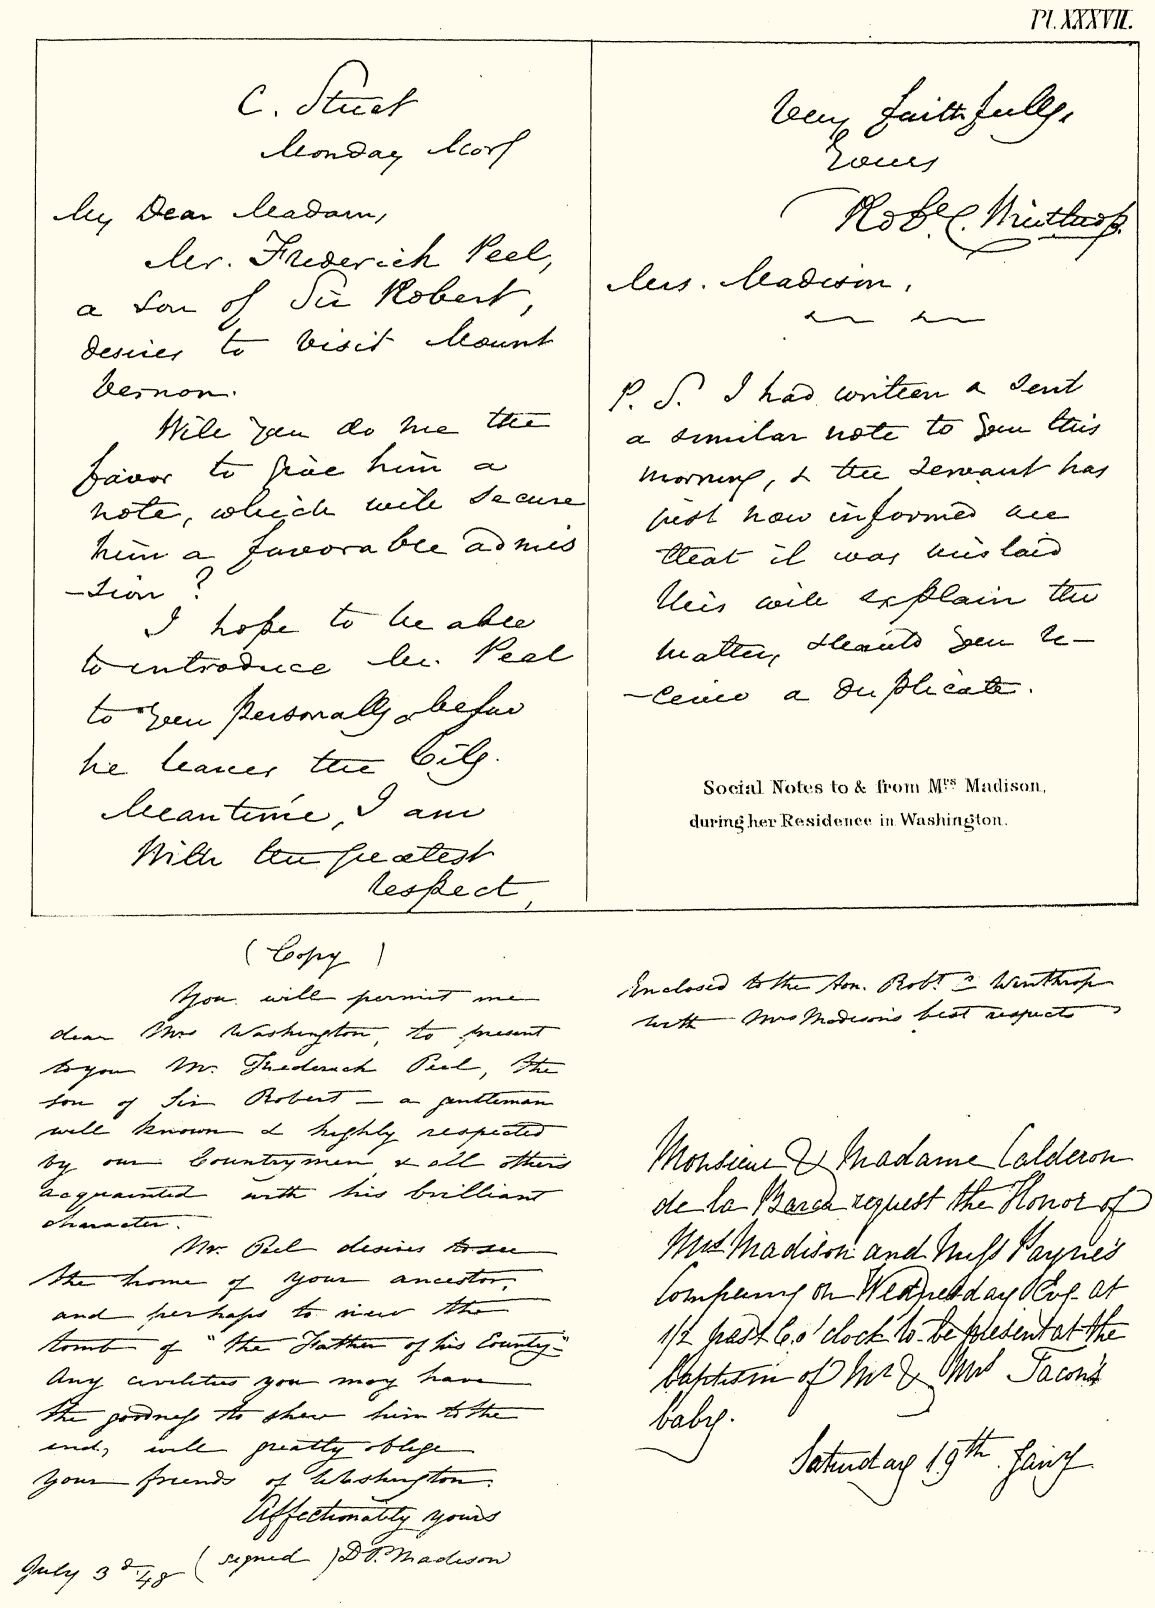 Pl. XXXVII.
C. Street
Monday Morg
My Dear Madam,
Mr. Frederick Peel,
a son of Sir Robert,
desires to visit Mount
Vernon.
Will you do me the
favor to give him a
note, which will secure
him a favorable admis
-sion?
I hope to be able
to introduce Mr. Peel
to you personally before
he leaves the City.
Meantime, I am
With the greatest
respect,
Very faithfully,
Yours
Robt. C. Winthrop.
Mrs. Madison,
P. S. I had written & sent
a similar note to you this
morning, & the servant has
just now informed me
that it was mislaid
This will explain the
matter, should you re-
-ceive a duplicate.
Social Notes to & from Mrs Madison,
during her Residence in Washington.
(Copy)
You will permit me
dear Mrs Washington, to present
to you Mr. Frederick Peel, the
son of Sir Robert — a gentleman
well known & highly respected
by our Countrymen, & all others
acquainted with his brilliant
character.
Mr. Peel desires to see
the home of your ancestor,
and perhaps to view the
tomb of "the Father of his County."
Any civilities you may have
the goodness to shew him to the
end, will greatly oblige
your friends of Washington.
Affectionately yours
July 3d. 48 (signed) D. P. Madison
Enclosed to the Hon. Robt. C Winthrop
with Mrs Madison's best respects
Monsieur & Madame Calderon
de la Barca request the Honor of
Mrs Madison and Miss Payne's
Company on Wednesday Evg. at
1/2 past 6. o'clock to be present at the
baptism of Mr & Mrs Tacon's
baby.
Saturday 19th. Jany